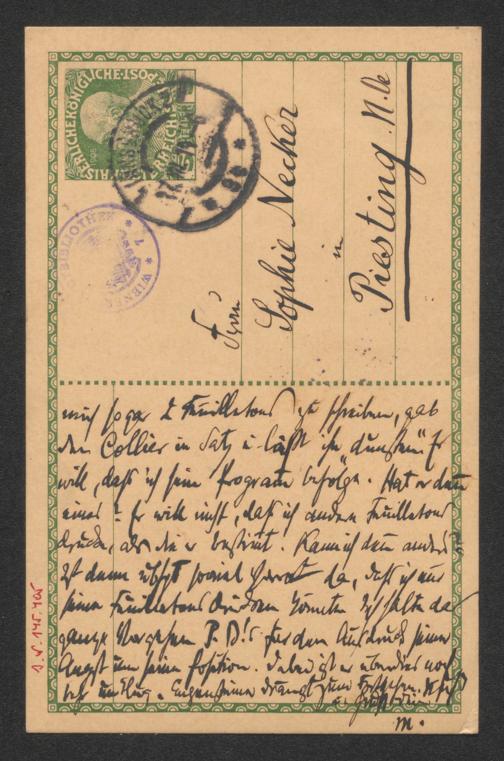 KAISERLICHEKÖNIGLICHE·POST
ÖSTERREICH
INNSBRUCK
WIENER
BIBLIOTHEK
Frau
Sophie Necker
in
Piesting N.Oe
mich sogar 2 Feuilletons zu schreiben, gab
den Collier in Satz u läßt ihn "dunsten" Er
will, daß ich sein Program befolge. Hat er denn
eines? Er will nicht, daß ich andere Feuilletons
drucke, als die er bestimmt. Kann ich denn anders?
Ist denn soviel Vorrat da, daß ich nur
seine Feuilletons drucken könnte? Ich halte das
ganze Vorgehen P. G!s für den Ausdruck seiner
Angst um seine Position. Dabei ist er überdies noch
sehr unklug.
M.
J.N. 145.405